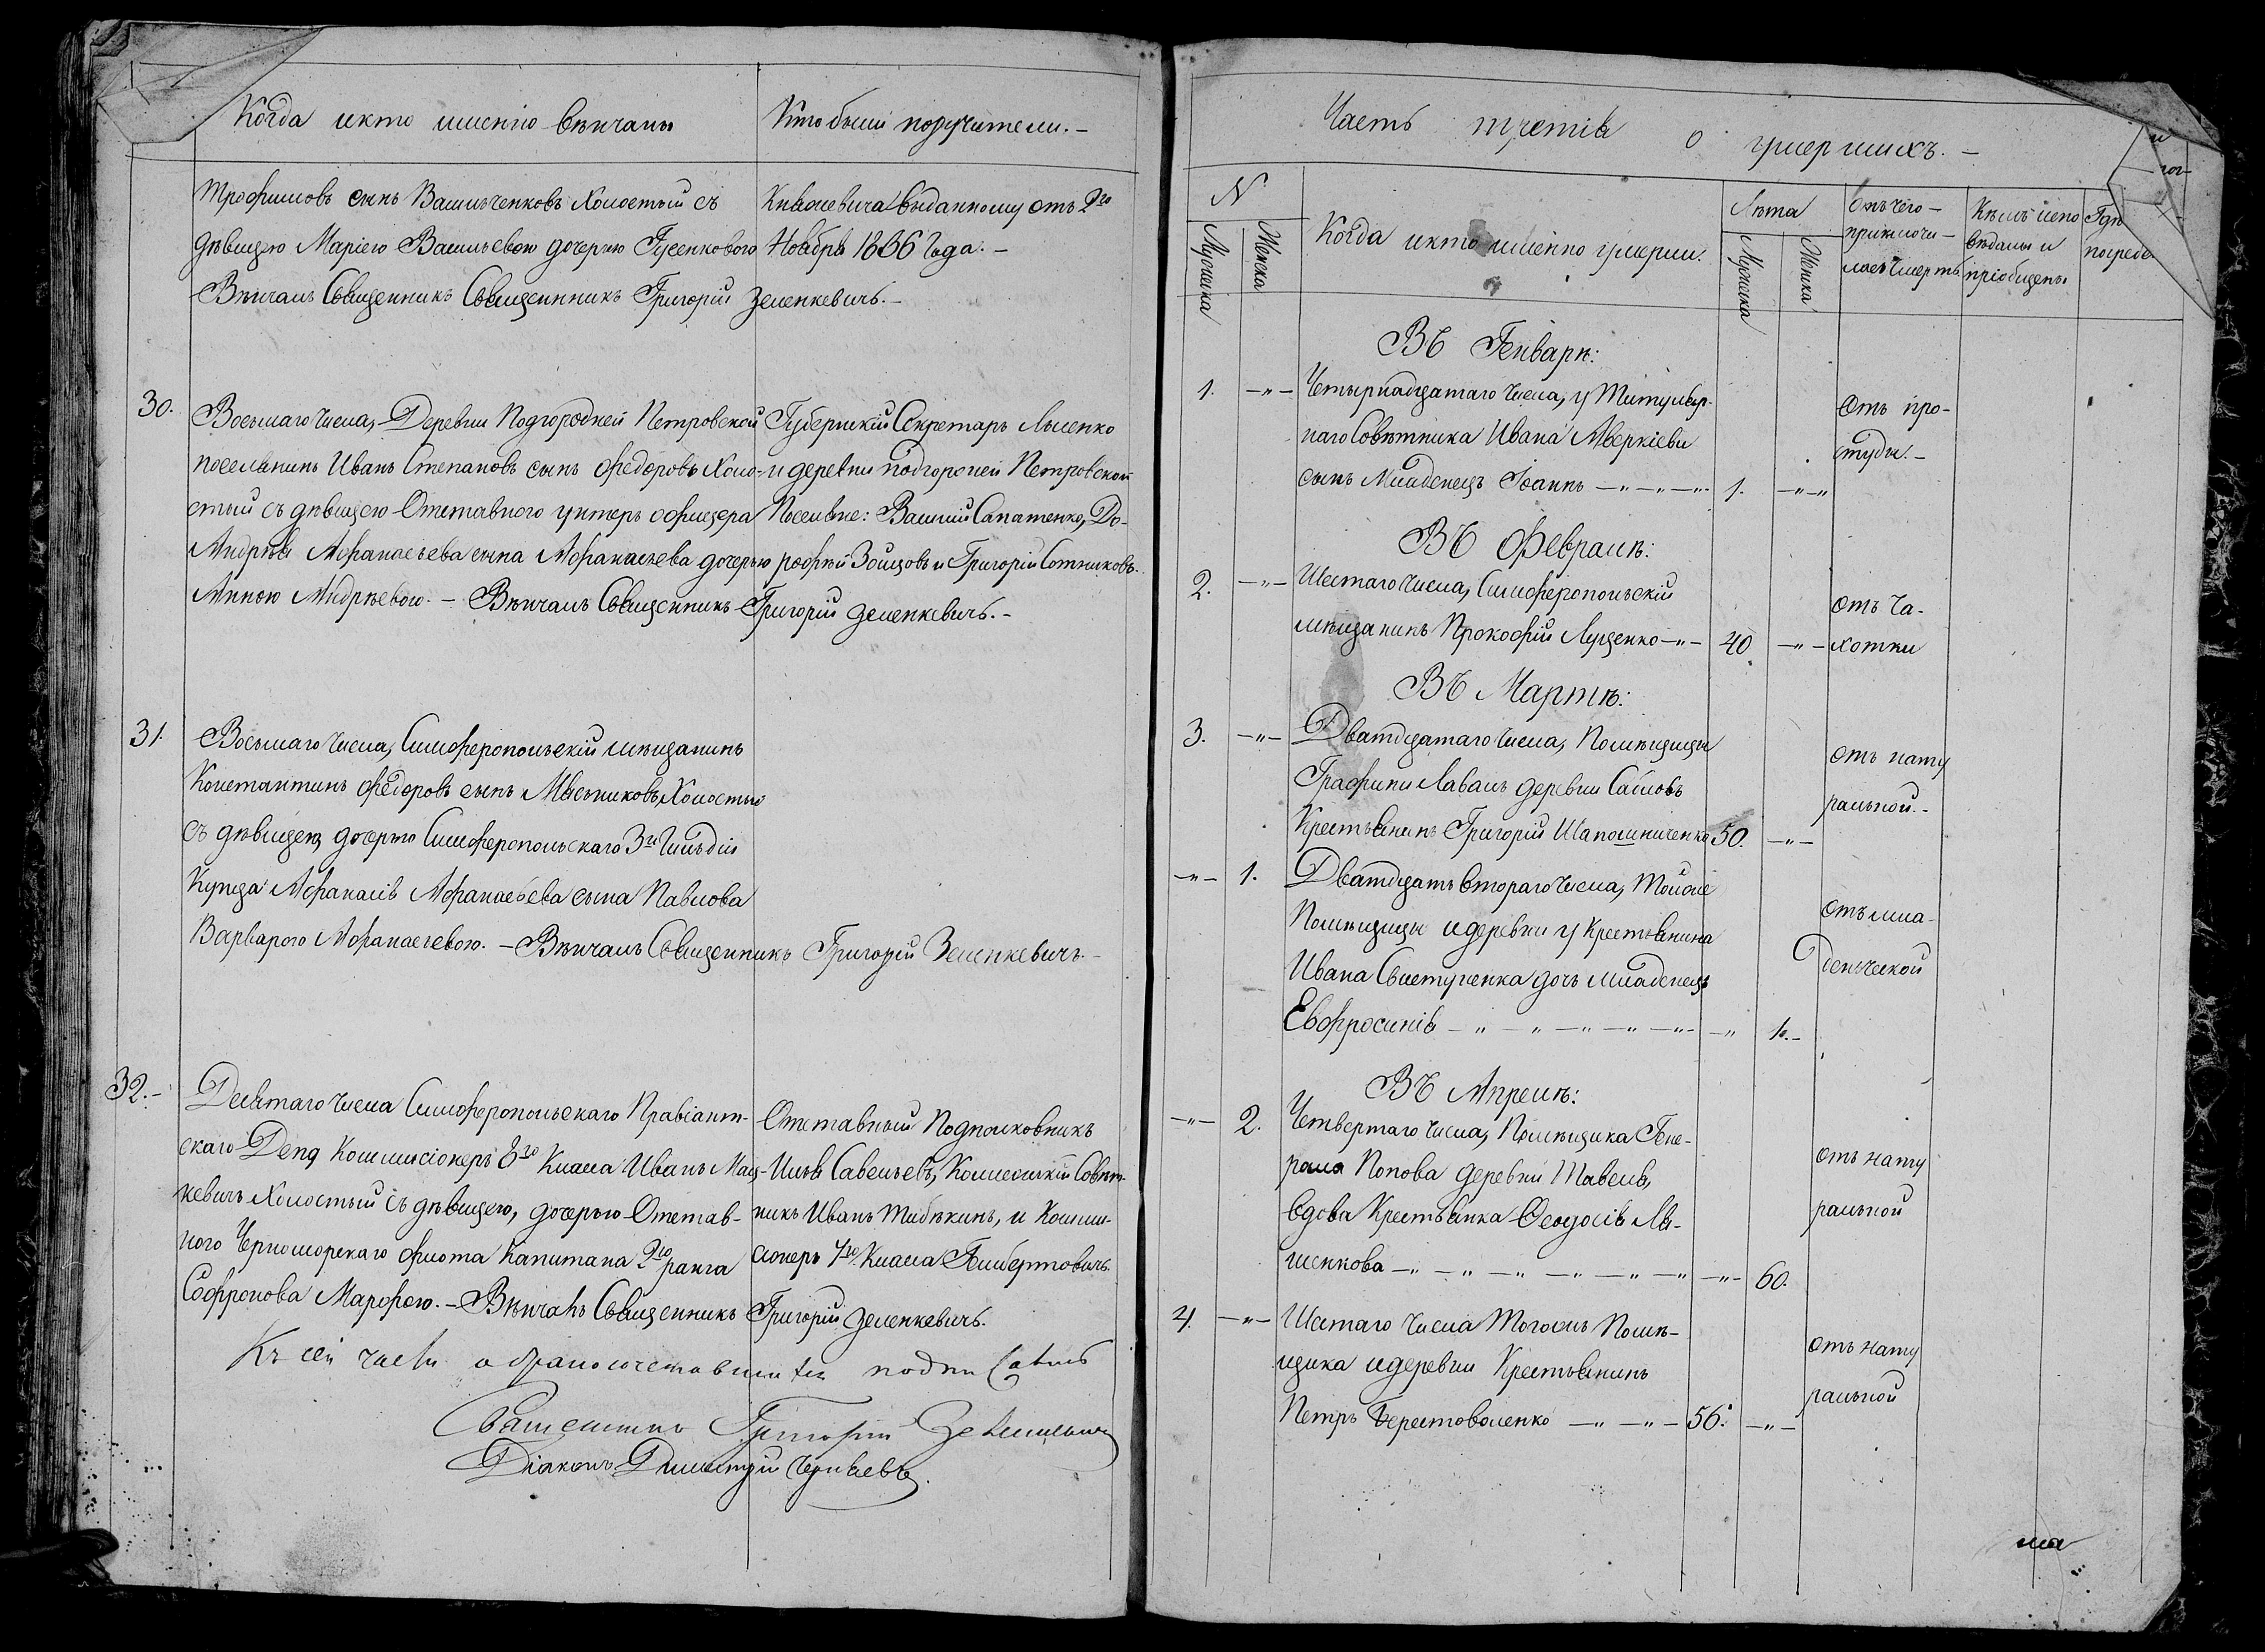 Когда и кто именно вѣнчаны
Кто были поручители. –
Трофимовъ сынъ Васильченковъ Холостый съ
дѣвицею Маріею Васильевою дочерью Гусенкового
Вѣнчалъ Священникъ Священникъ Григорій Зеленкевичъ. –
выданному отъ 2го
Ноября 1836 Года. –
30. Восьмаго Числа, Деревни Подгородней Петровской
поселянинъ Иванъ Степановъ сынъ Федоровъ Холо-
стый съ дѣвицею Отставного унтеръ офицера
Андрѣя Афанасьева сына Афанасьева дочерью
Анною Андрѣевою. – Вѣнчалъ Священникъ Григорій Зеленкевичъ. –
Губернскій Секретарь Лысенко
и деревни подгороней Петровской
Поселяне: Василій Сапатенко, До-
рофѣй Зайцовъ и Григорій Сотниковъ.
31. Восьмаго Числа, Симферопольскій мѣщанинъ
Константинъ Федоровъ сынъ Мясниковъ, Холостый
съ дѣвицею дочерью Симферопольскаго 3й Гильдіи
Купца Афанасія Афанасьева сына Павлова
Варварою Афанасьевою. – Вѣнчалъ Священникъ Григорій Зеленкевичъ. –
32. – Десятаго Числа Симферопольскаго Правіант-
скаго Депо Коммисіонеръ 8го Класса Иванъ Мац-
кевичъ Холостый съ дѣвицею, дочерью Отстав-
ного Черноморскаго флота Капитана 2го ранга
Софронова Марфою. – Вѣнчалъ Священникъ Григорій Зеленкевичъ.
Отставный Подполковникъ
Илья Савельевъ, Коллежскій Совѣт-
никъ Иванъ Тибѣкинъ, и Комми-
сіонеръ 7го Класса Гильбертовичъ.
Къ сей части о бракосочетавшихся подписались
Священникъ Григорій Зеленкевичъ
Діаконъ Димитрій Черняевъ.
Часть третія о умершихъ. –
N
Мужеска
Женска
Когда и кто именно умерли.
Лѣта
Мужеска
Женска
Отъ чего –
приключи –
лась Смерть
Кѣмъ испо
вѣданы и
пріобщены
Гдѣ
погребе
Въ Генварѣ:
1. –„– Четырнадцатаго Числа, у Титуляр-
наго Совѣтника Ивана Аверкіева
сынъ Младенецъ Іоаннъ –„–„– 1. –„–
Отъ про-
студы. –
Въ Февралѣ:
2. –„– Шестаго Числа, Симферопольскій
мѣщанинъ Прокофій Луценко –„– 40. –„–
отъ Ча-
хотки
Въ Мартѣ:
3. –„– Дватцатаго Числа, Помѣщицы
Графини Лаваль деревни Сабловъ
Крестьянинъ Григорій Шапошниченко 50. –„–
отъ нату
ральной. –
–„– 1. Дватцать втораго Числа, Тойже
Помѣщицы и деревни у Крестьянина
Ивана Свистуненка дочь младенецъ
Евфросинія –„–„–„–„–„– –„ 1. –
Отъ мла-
денческой
Въ Апрелѣ:
–„– 2. Четвертаго Числа, Помѣщика Гене-
рала Попова деревни Тавеля,
вдова Крестьянка Ѳеодосія Ля-
шенкова –„–„–„–„–„–„–„– 60.
отъ нату
ральной
4. –„– Шестаго Числа Тогожъ Помѣ-
щика и деревни Крестьянинъ
Петръ Берестоваленко –„–„– 56. –„–
отъ нату
ральной